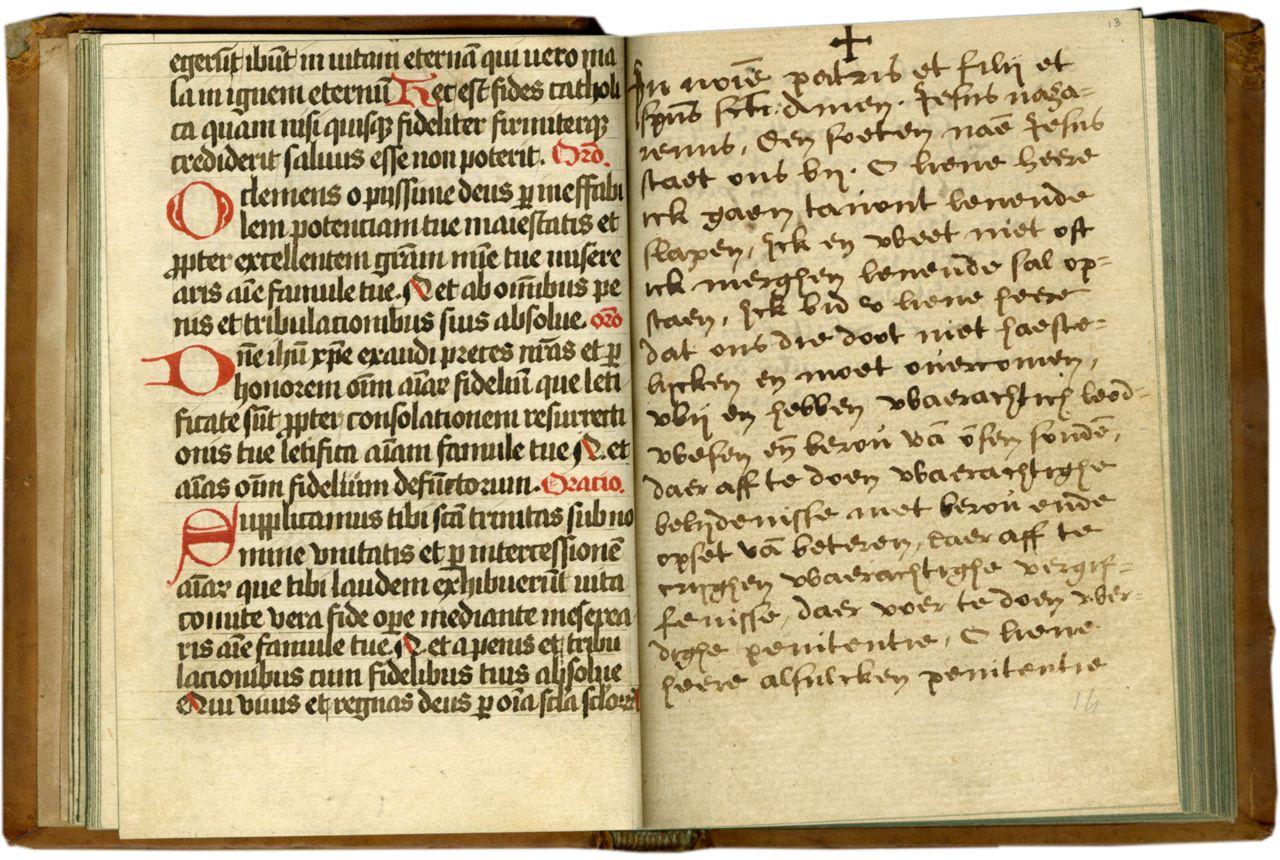 egerūt ibūt in uitam eternā qui uero ma
la in ignem eternū Hec est fides catholi
ca quam nisi quisqꝫ fideliter firmiterqꝫ
crediderit saluus esse non poterit. Oro.
O clemens o pijssime deus ꝑ ineffabi
lem potenciam tue maiestatis et
ꝓpter excellentem grām mīe tue misere
aris aīe famule tue. Vͅ et ab oīnibus pe
nis et tribulationibus suis absolue. oro
Dn̄e ihū xp̄e exaudi preces nr̄as et ꝑ
honorem oīm aīaꝝ fideliū que leti
ficate sūt ꝓpter consolationem resurrecti
onis tue letifica aīam famule tue et
aīas oīm fidelium defūctorum. Oratio.
Supplicamus tibi sctā trinitas sub no
mine vnitatis et ꝑ intercessionē
aīaꝝ que tibi laudem exhibuerūt uita
comite vera fide ope mediante miserea
ris aīe famule tue. et a penis et tribu
lationibus cum fidelibus tuis absolue
Qui viuis et regnas deus ꝑ oīa scla scloꝝ
13
✝
In noīe patris et filij et
spūs scti: Amen. Jesus naza-
renus, Den soeten naē Jesus
staet ons bij. O lieue heere
ick gaen tauont leuende
slapen, Ick en vveet niet oft
ick merghen leuende sal op-
staen, Ick bid v lieue heere
dat ons die doot niet haeste-
lijcken en moet ouercomen,
vvij en hebben vvaerachtich leed-
vvesen eñ berou vā ōsen sondē,
daer aff te doen vvaerachtighe
belijdenisse met berou ende
opset vā beteren, daer aff te
crijghen vvaerachtighe vergif-
fenisse, daer voer te doen vver-
dighe penitentie, O lieue
heere alsulcken penitentie
14